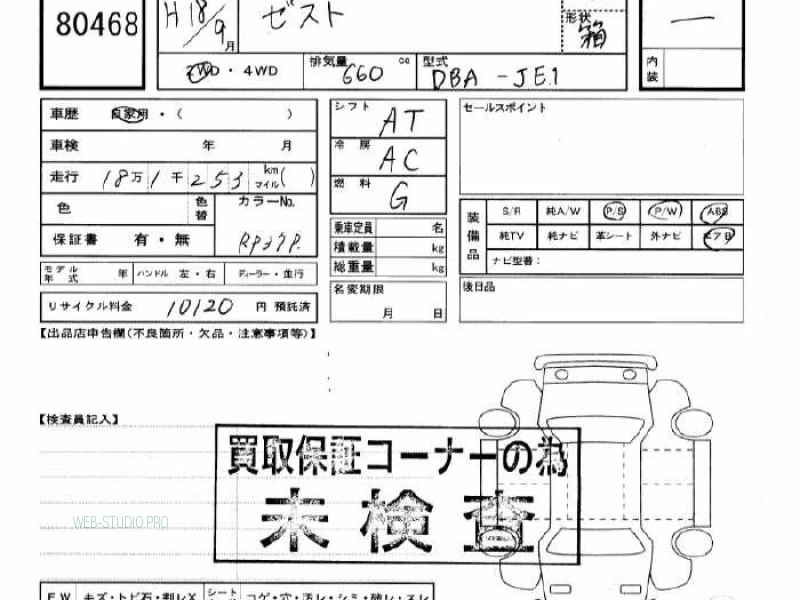 80468
H18/9月
ゼスト
形状 箱
―
内装
2WD・4WD
排気量 660 cc
型式 DBA-JE1
車歴 自家用・( )
車検 年 月
走行 18万1千253 km マイル( )
色 色替 カラーNo.
保証書 有・無 RP37P.
モデル年式 年 ハンドル 左・右 ディーラー・並行
リサイクル料金 10120 円 預託済
シフト AT
冷房 AC
燃料 G
乗車定員 名
積載量 kg
総重量 kg
名変期限
月 日
セールスポイント
装備品
S/R 純A/W P/S P/W ABS
純TV 純ナビ 革シート 外ナビ エアB
ナビ型番:
後日品
【出品店申告欄(不良箇所・欠品・注意事項等)】
【検査員記入】
買取保証コーナーの為
未検査
WEB-STUDIO.PRO
FW キズ・トビ石・割レX シート コゲ・穴・汚レ・シミ・破レ・スレ